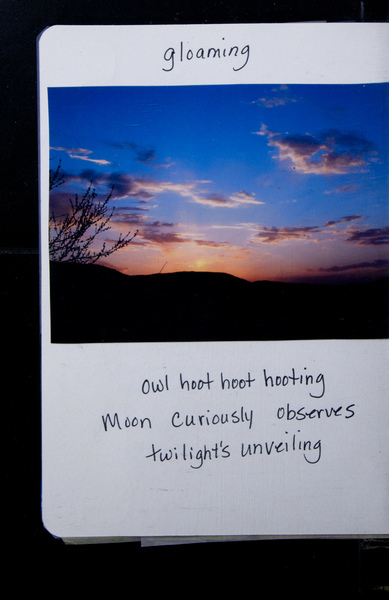 gloaming
owl hoot hoot hooting
Moon Curiously observes
twilight's unveiling